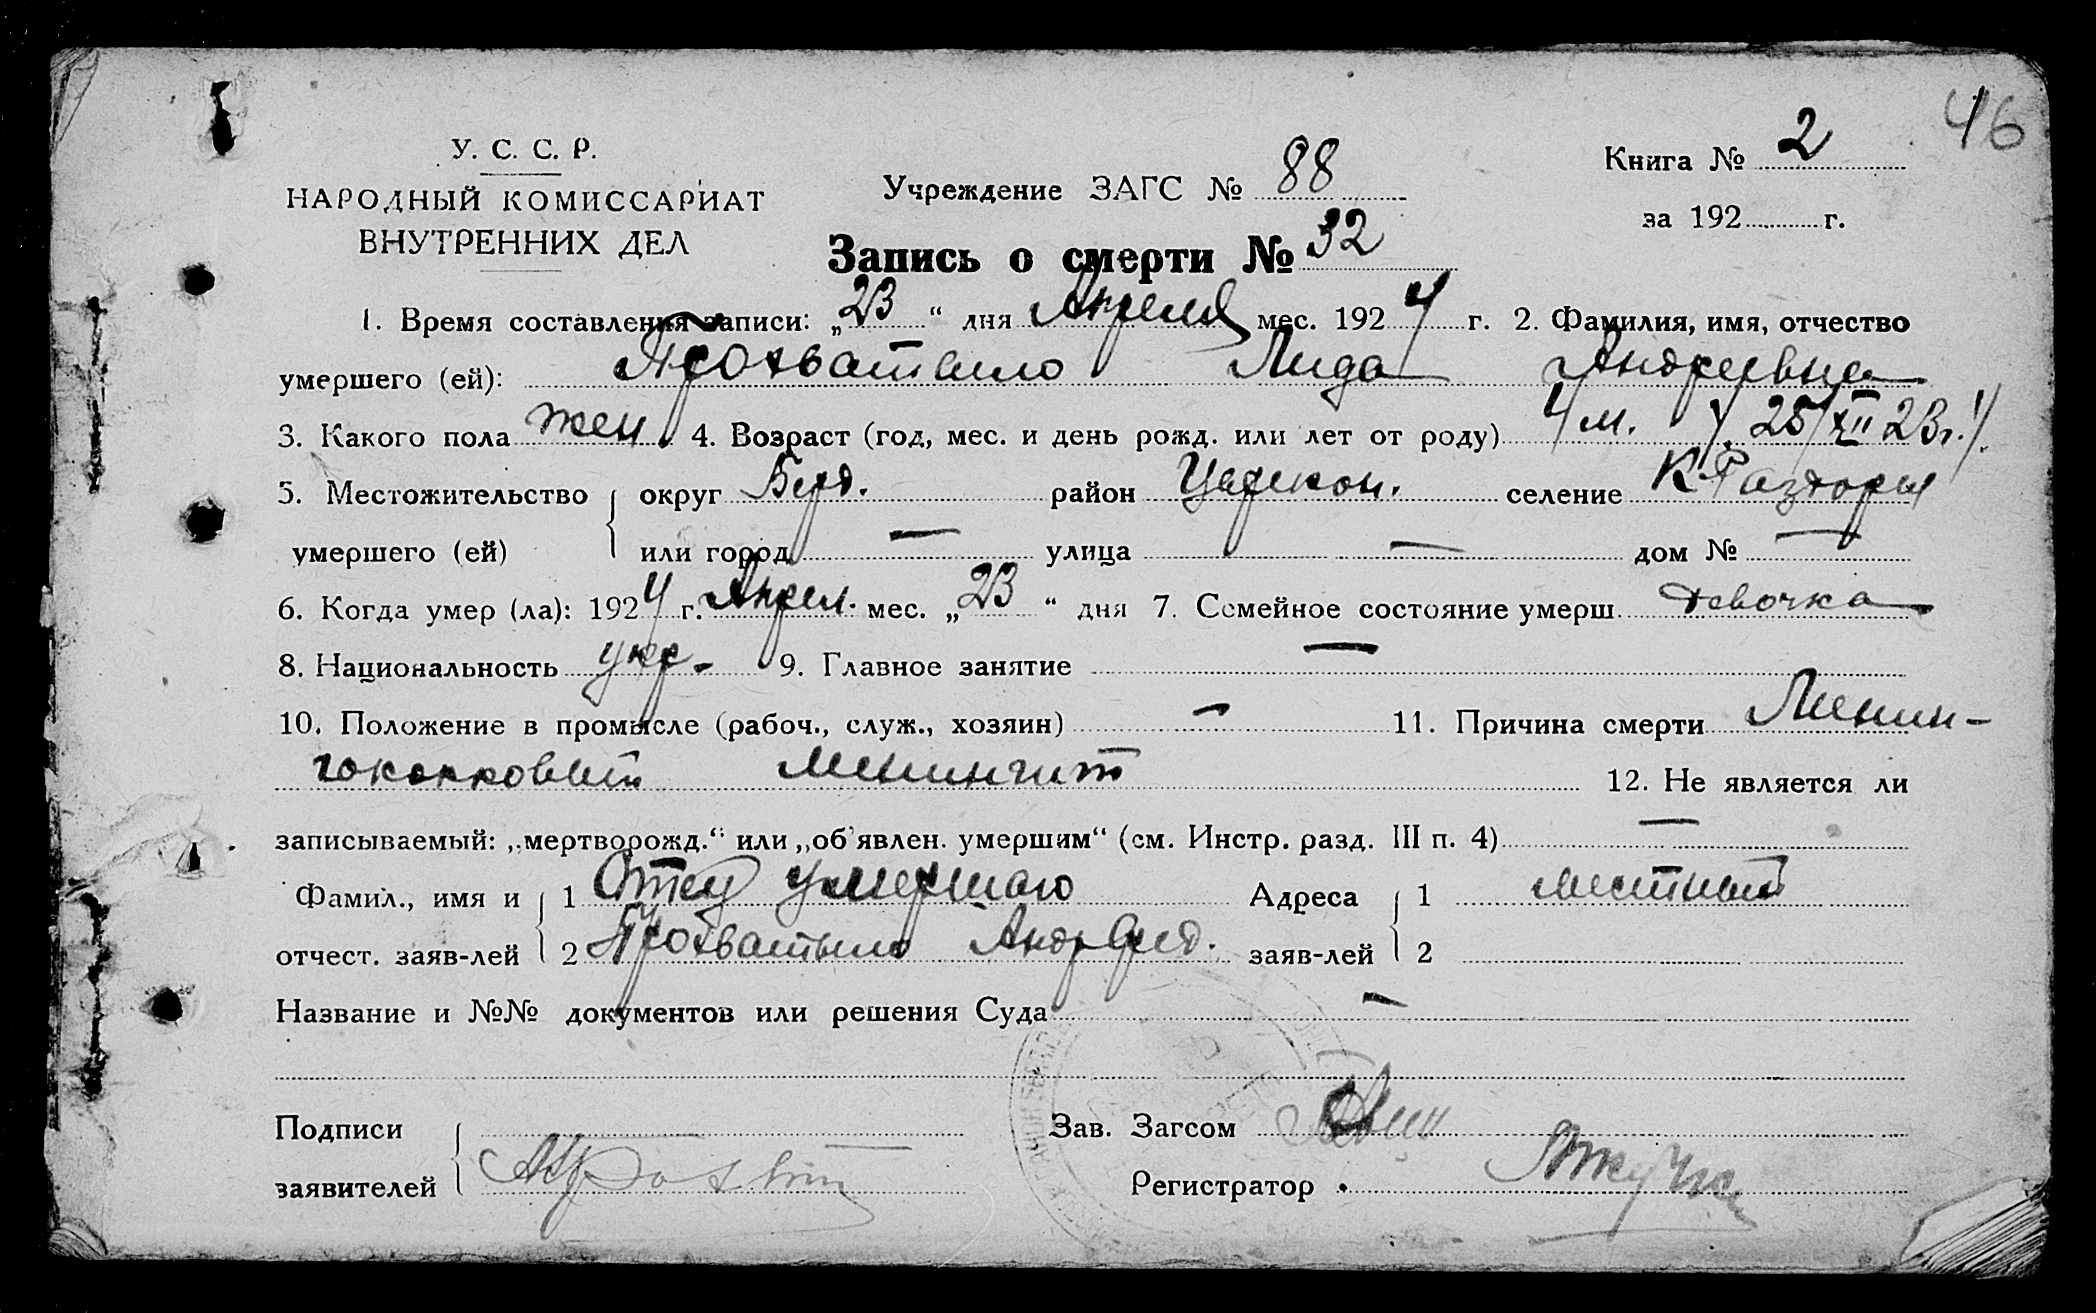 46
У. С. С. Р.
НАРОДНЫЙ КОМИССАРИАТ
ВНУТРЕННИХ ДЕЛ
Учреждение ЗАГС № 88
Книга № 2
за 192 г.
Запись о смерти № 32
1. Время составления записи: „23“ дня Апреля мес. 1924 г. 2. Фамилия, имя, отчество
умершего (ей): Прохватило Лида Андреевна
3. Какого пола жен. 4. Возраст (год, мес. и день рожд. или лет от роду) 4 м. 25/XII 23г.
5. Местожительство округ Берд. район Царекон. селение К-Раздоры
умершего (ей) или город — улица — дом № —
6. Когда умер (ла): 1924 г. Апрел. мес. „23“ дня 7. Семейное состояние умерш. девочка
8. Национальность укр. 9. Главное занятие —
10. Положение в промысле (рабоч., служ., хозяин) — 11. Причина смерти Менин-
гококковый менингит 12. Не является ли
записываемый: „мертворожд.“ или „об'явлен. умершим“ (см. Инстр. разд. III п. 4) —
Фамил., имя и 1 Отец умершаго Адреса 1 местный
отчест. заяв-лей 2 Прохватило Андр. заяв-лей 2
Название и №№ документов или решения Суда —
Подписи
Зав. Загсом
заявителей
Регистратор